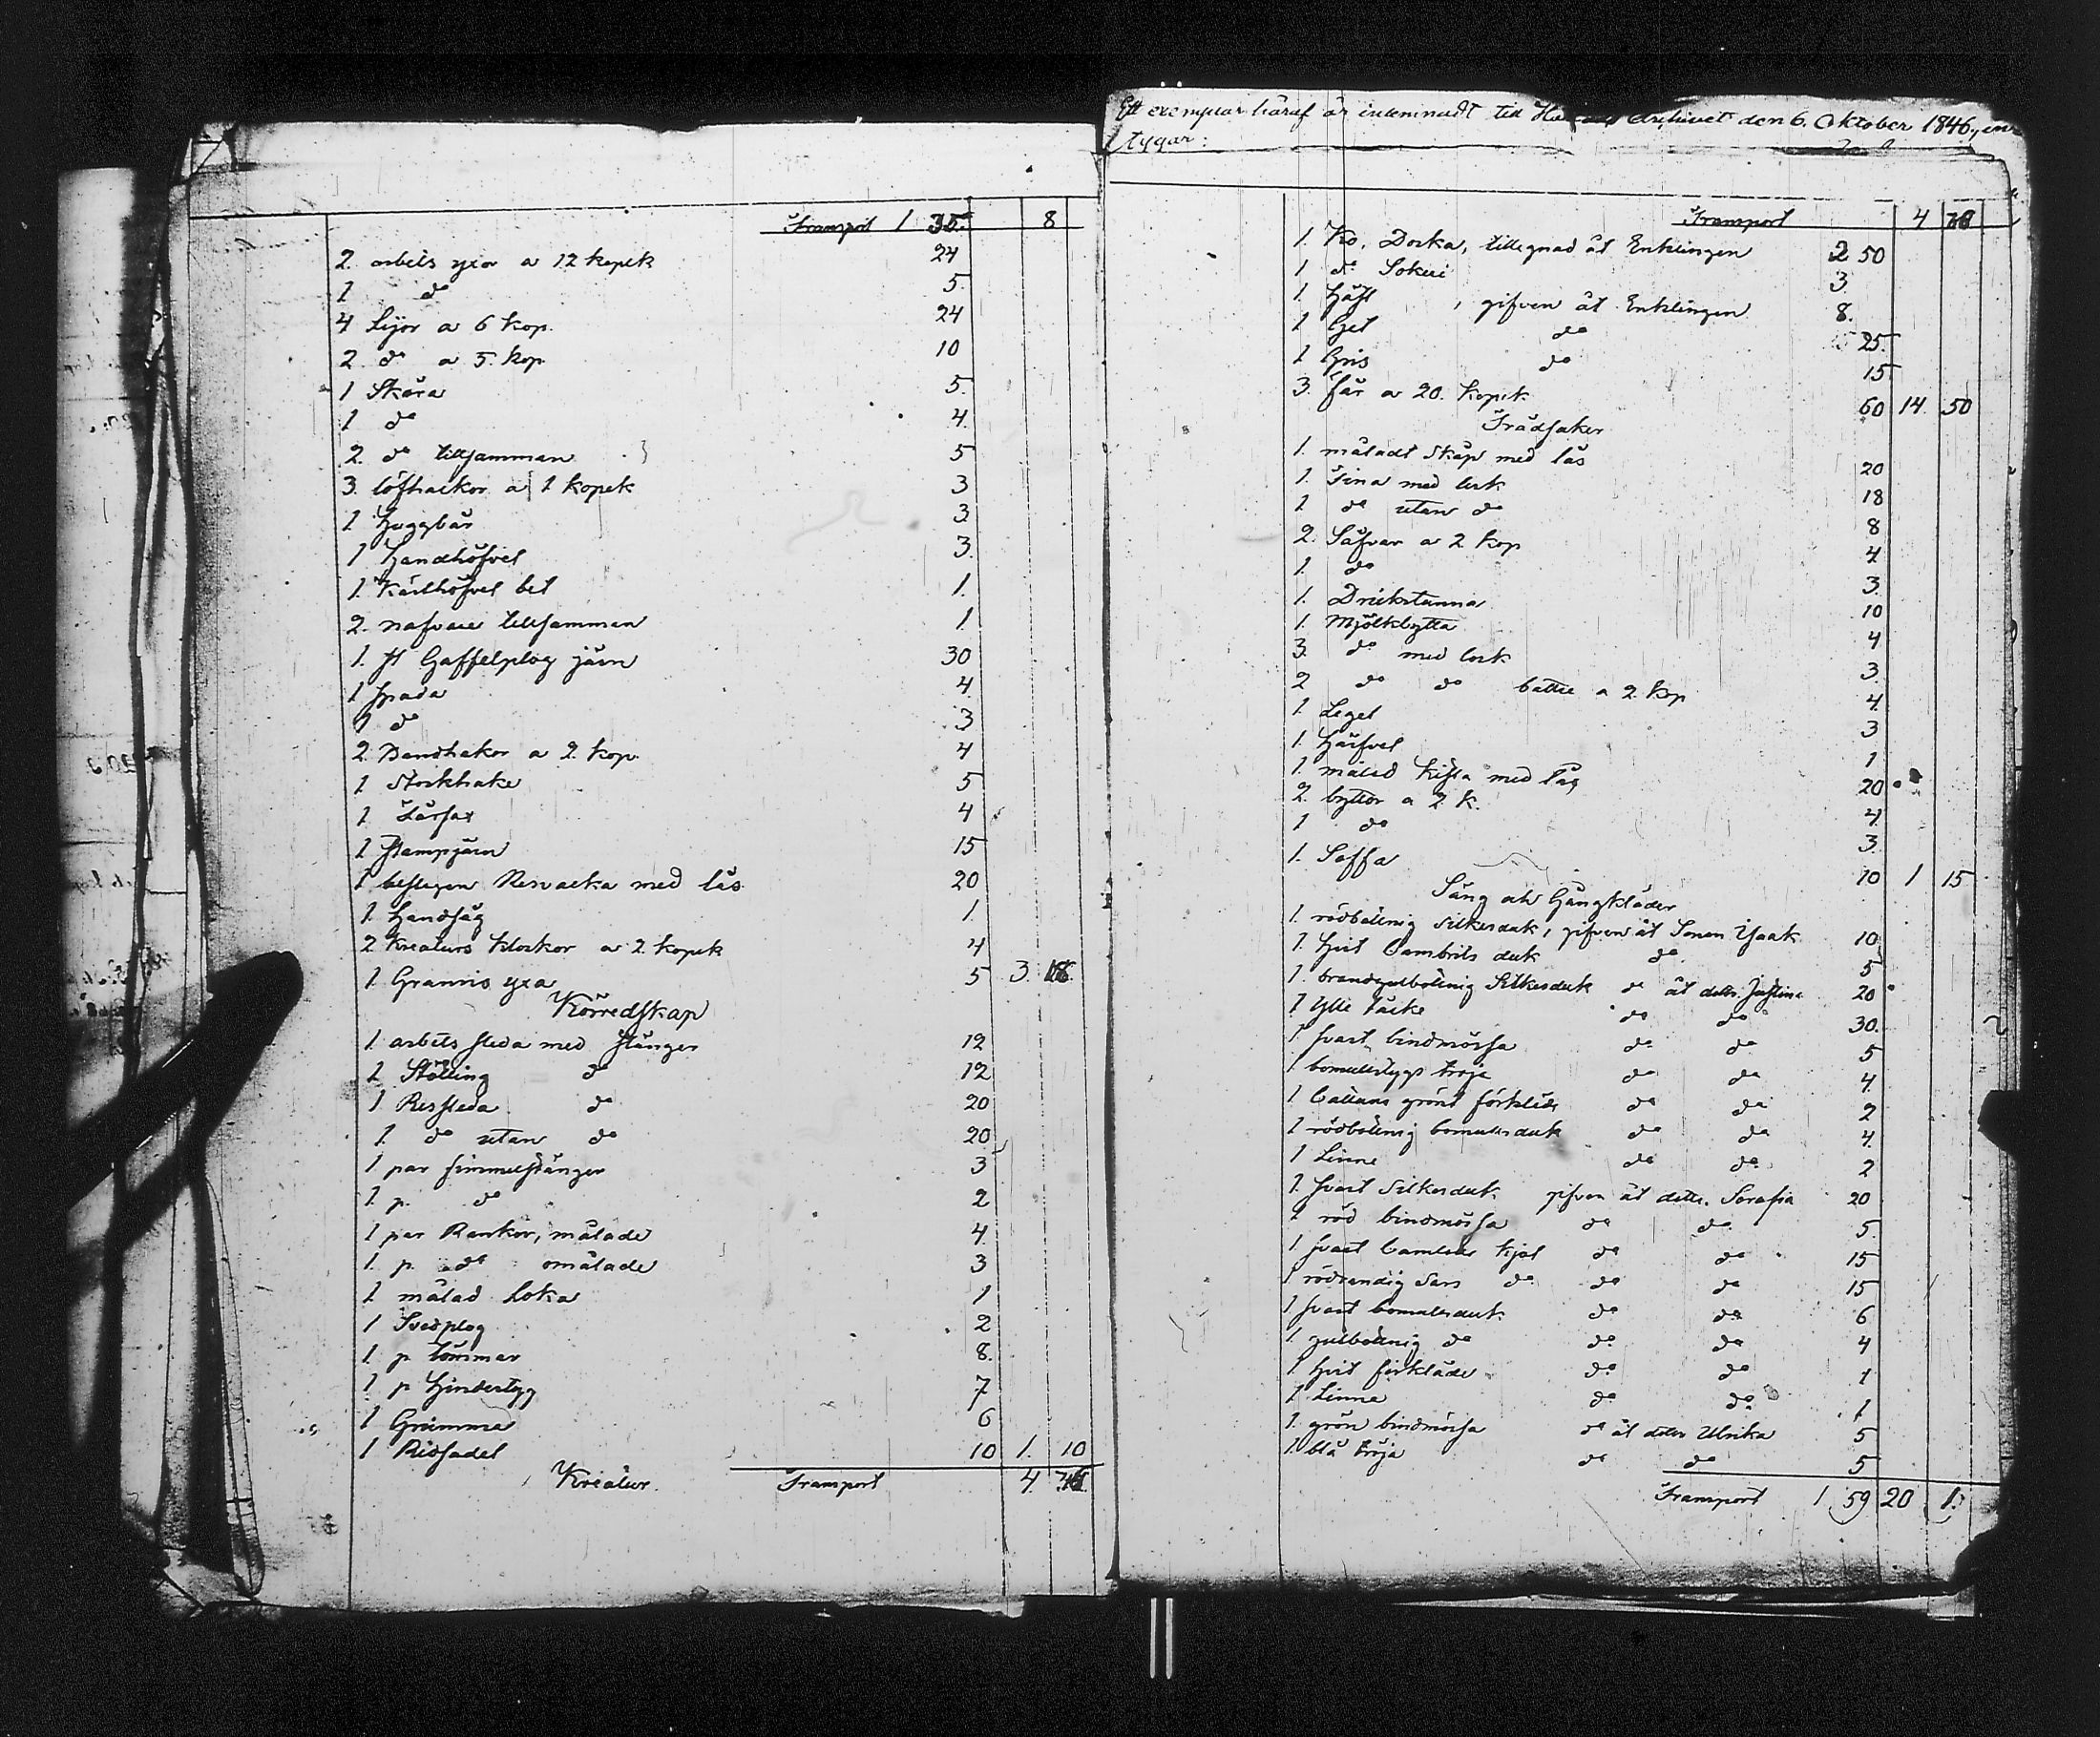 Transport 1 35. 8
2. arbets yxor a 12 kopek 24
1 do 5.
4 Lijor a 6 kop. 24
2 do a 5. kop 10
1 Skära 5.
1 do 4.
2. do tillsamman 5
3. löfhackor a 1 kopek 3
1 Huggbär 3
1 Handhöfvel 3.
1. Kärlhöfvel bet 1.
2. nafvare tillsamman 1.
1. st Gaffelplog järn 30
1 spada 4.
1 do 3
2. Bandhakor a 2. kop. 4
1 Stockhake 5
1 Fårsax 4
1 stampjärn 15
1 beslagen Resvacka med lås 20
1 Handsåg 1.
2 Kreaturs klockor a 2 kopek 4
1. Grannis yxa 5 3. 18.
Körredskap
1 arbets släda med stänger 12
1 Stötting do 12
1 Ressläda do 20
1. do utan do 20
1 par fimmelstänger 3
1 p. do 2
1 par Rankor, målade 4.
1 p. do omålade 3
1 målad Loka 1
1 Svedplog 2
1 p tömmar 8.
1 p Hindertyg 7
1 Grimma 6
1 Ridsadel 10 1. 10
Kreatur. Transport 4. 46.
Ett exemplar häraf är inlemnadt till Archivet den 6. Oktober 1846,
tygar:
Transport 4
1. Ko, Docka, tillegnad åt Enklingen 2 50
1 do Sokeri 3.
1. Häst, gifven åt Enklingen 8.
1 Get do 25.
1 Gris do 15
3. får a 20. kopek 60 14. 50
Trädsaker
1. måladt skåp med lås 20
1. Tina med lock 18
1 do utan do 8
2. Såfvar a 2 kop 4
1. do 3.
1. Drickstunna 10
1. Mjölkbytta 4
3. do med lock 3.
2 do do bättre a 2. kop 4.
1. Legel 3
1. Härfvel 1
1. målad kista med lås 20
2. byttor a 2. k. 4.
1 do 3.
1. Soffa 10 1 15
Säng och Gångkläder
1. rödbotenig silkesduk, gifven åt Sonen Isaak 10
1. hvit Cambriks duk do 5
1. brandgulbotenig Silkesduk do åt dottr. Justina 20
1 ylle täcke do do 30.
1 svart bindmössa do do 5
1 bomullstygs tröja do do 4.
1 Cattuns grönt förkläde do do 2
1 rödbotenig bomullsduk do do 4.
1 Linne do do 2
1. svart Silkesduk gifven åt dottr. Serafia 20
1 röd bindmössa do do 5.
1 svart Camlots kjol do do 15
1 rödrandig Sars do do do 15
1 svart bomullsduk do do 6
1 gulbotenig do do do 4
1 hvit förkläde do do 1
1 Linne do do 1
1. grön bindmössa do åt dottr Ulrika 5
1. blå tröja do do 5
Transport 1. 59 20 1.